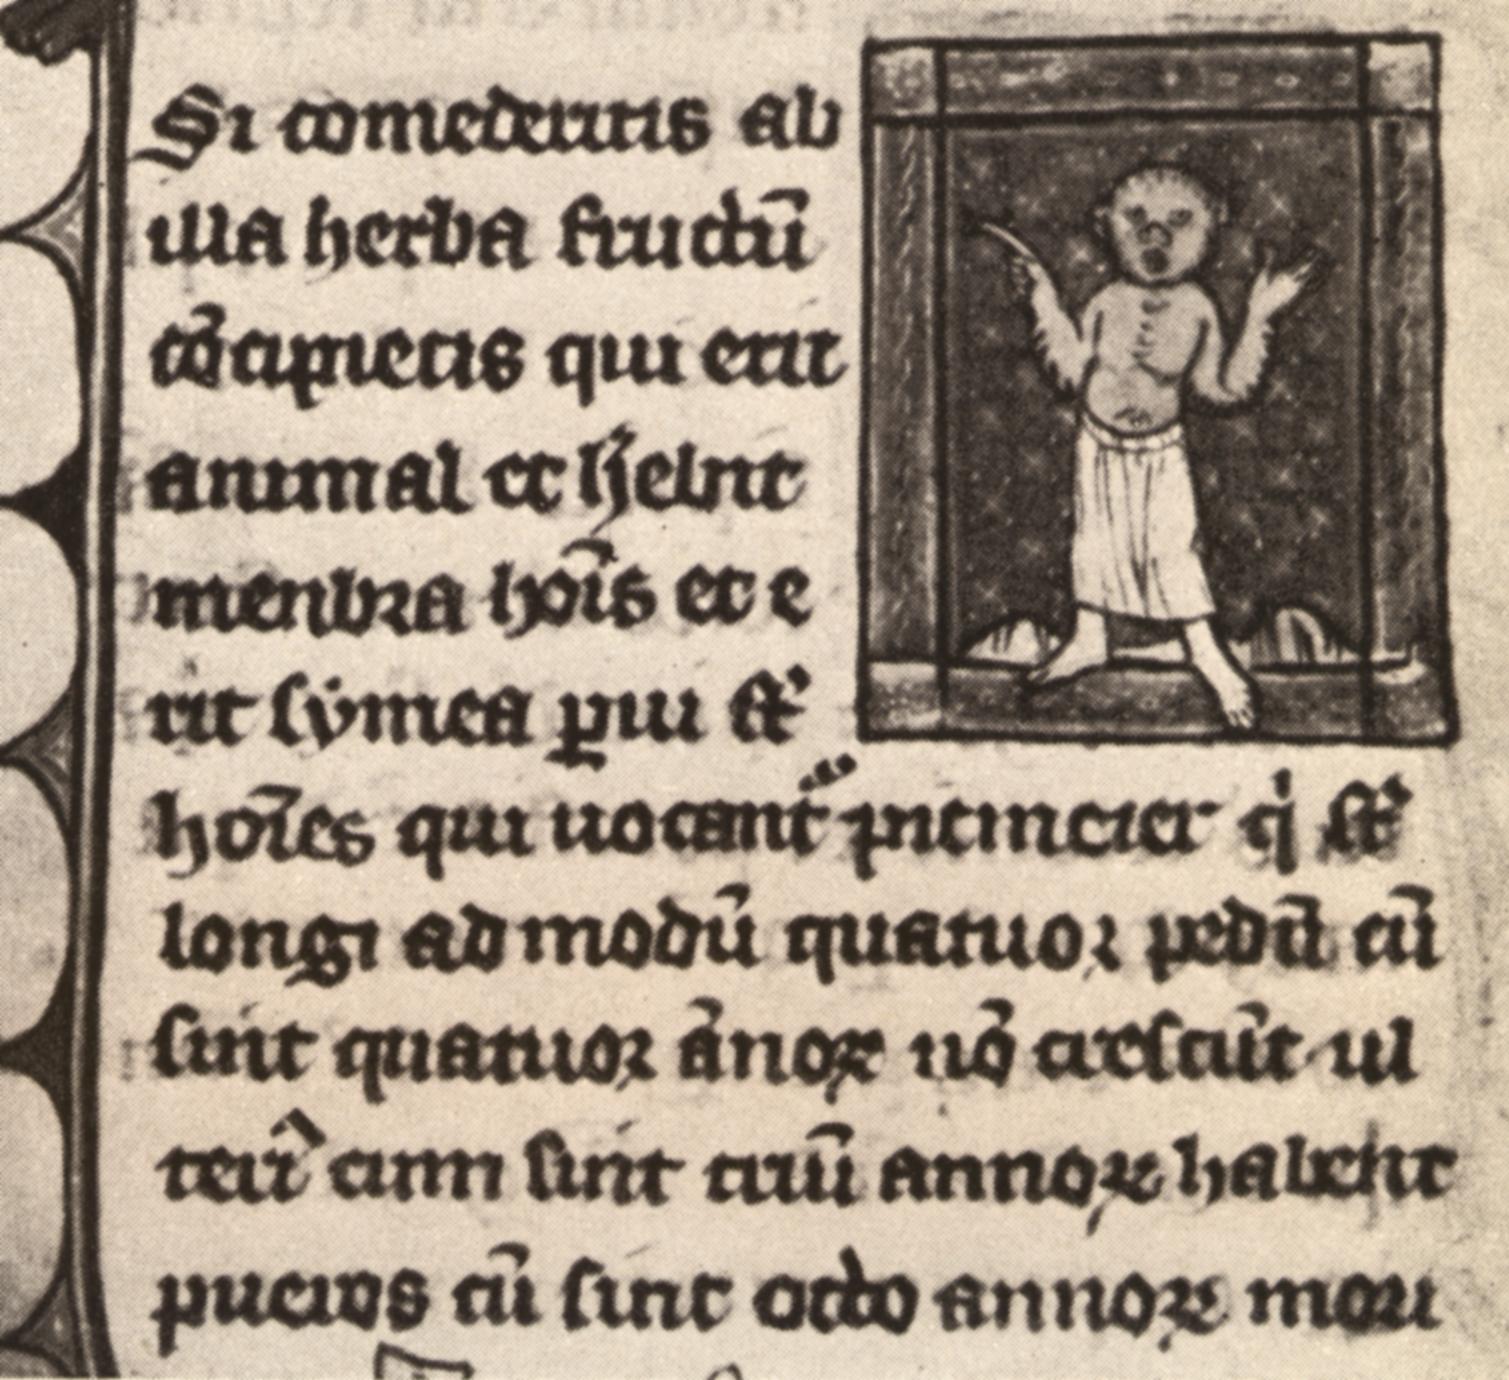 Si comederitis ab
illa herba fructū
cōcipietis qui erit
animal et h̄ebit
menbra hoīs et e
rit symea p̱ui st̄
hoīes qui uocant̄ pitincier q̇ st̄
longi ad modū quatuor pedū cū
sint quatuor ānoꝝ nō crescūt ul
teri᾽ cum sint triū annoꝝ habent
pueros cū sint octo annoꝝ mori